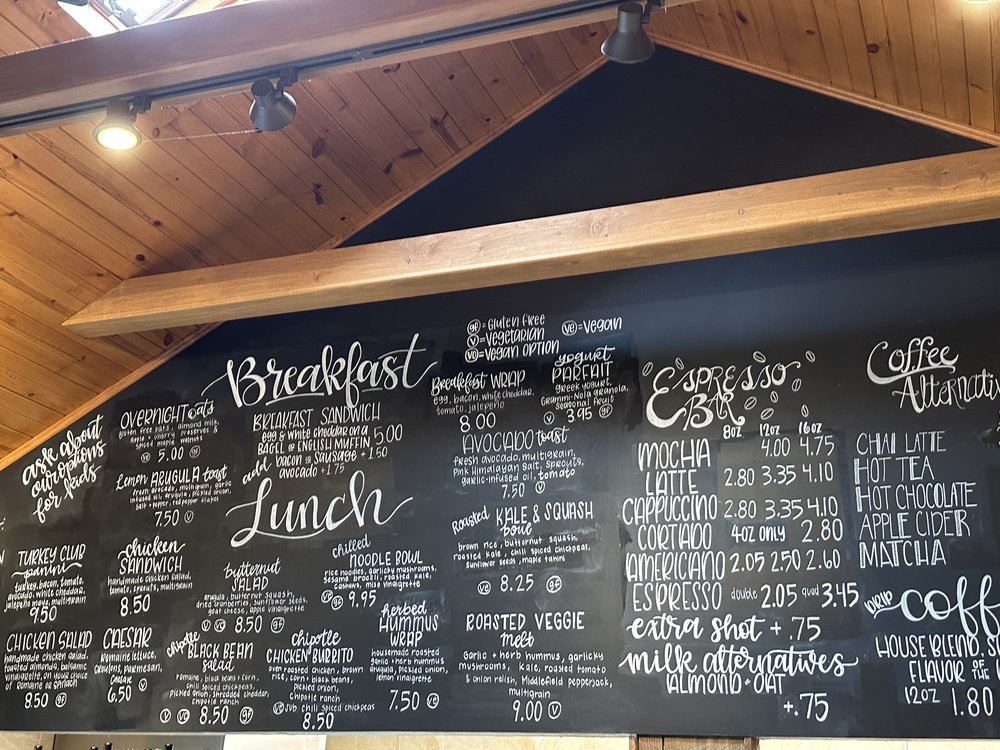 gf = Gluten Free
V = Vegetarian
VO = Vegan Option
ve = Vegan
Breakfast
ask about
our options
for kids
OVERNIGHT oats
gluten free oats, almond milk,
apple + cherry preserves &
spiced maple walnuts
gf 5.00 V
Lemon ARUGULA toast
fresh avocado, multigrain, garlic
infused oil, arugula, pickled onion,
salt + pepper, red pepper flakes
7.50 V
BREAKFAST SANDWICH
egg & white cheddar on a
BAGEL or ENGLISH MUFFIN 5.00
add bacon or sausage +1.50
avocado +1.75
Breakfast WRAP
egg, bacon, white cheddar,
tomato, jalapeño
8.00
yogurt
PARFAIT
greek yogurt,
Grammi-Nola granola,
seasonal fruit
V 3.95 gf
AVOCADO toast
fresh avocado, multigrain,
pink himalayan salt, sprouts,
garlic-infused oil, tomato
7.50 V
Lunch
TURKEY CLUB
panini
turkey, bacon, tomato,
avocado, white cheddar,
jalapeño mayo, multigrain
9.50
chicken
SANDWICH
handmade chicken salad,
tomato, sprouts, multigrain
8.50
butternut
SALAD
arugula, butternut squash,
dried cranberries, sunflower seeds,
apple vinaigrette
V VO 8.50 gf
chilled
NOODLE BOWL
rice noodles, garlicky mushrooms,
sesame brocoli, roasted kale,
cashews, miso vinaigrette
ve gf 9.95
Roasted KALE & SQUASH
bowl
brown rice, butternut squash,
roasted kale, chili spiced chickpeas,
sunflower seeds, maple tahini
ve 8.25 gf
CHICKEN SALAD
handmade chicken salad,
roasted almonds, balsamic
vinaigrette, on your choice
of romaine or spinach
8.50 gf
CAESAR
romaine lettuce,
croutons, parmesan,
caesar
6.50 V
chipotle
BLACK BEAN
salad
romaine, black beans + corn,
chili spiced chickpeas,
pickled onion, shredded cheddar,
chipotle ranch
V VO 8.50 gf
chipotle
CHICKEN BURRITO
oven roasted chicken, brown
rice, corn + black beans,
pickled onion,
chipotle ranch
VO sub chili spiced chickpeas
8.50
herbed
HUMMUS
WRAP
housemade roasted
garlic + herb hummus
arugula, pickled onion,
lemon vinaigrette
7.50 ve
ROASTED VEGGIE
melt
Garlic + herb hummus, garlicky
mushrooms, kale, roasted tomato
& onion relish, Middlefield pepperjack,
multigrain
9.00 V
ESPRESSO
BAR
8oz 12oz 16oz
MOCHA 4.00 4.75
LATTE 2.80 3.35 4.10
CAPPUCCINO 2.80 3.35 4.10
CORTADO 4oz only 2.80
AMERICANO 2.05 2.50 2.60
ESPRESSO double 2.05 quad 3.45
extra shot +.75
milk alternatives
ALMOND + OAT
+.75
Coffee
Alternativ
CHAI LATTE
HOT TEA
HOT CHOCOLATE
APPLE CIDER
MATCHA
drip coff
HOUSE BLEND, S
FLAVOR OF THE
12oz 1.80